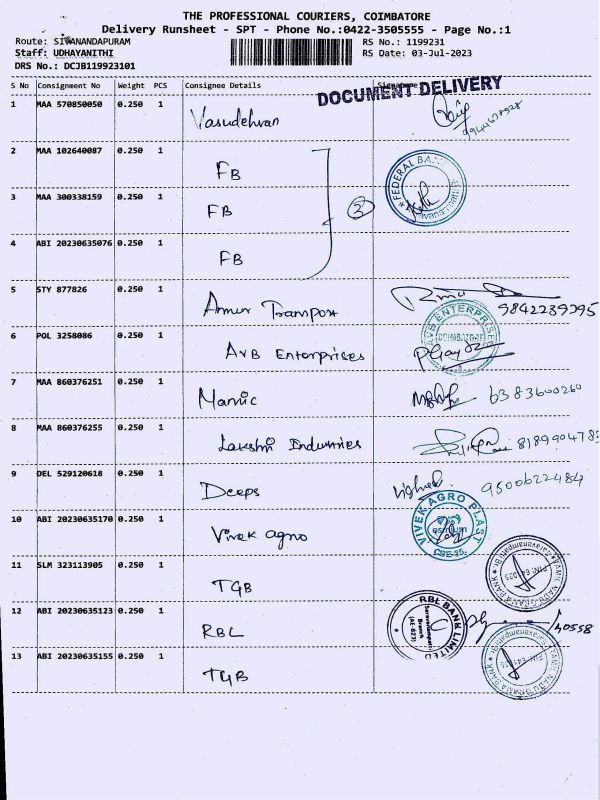 THE PROFESSIONAL COURIERS, COIMBATORE
Delivery Runsheet - SPT - Phone No.:0422-3505555 - Page No.:1
Route: SIVANANDAPURAM RS No.: 1199231
Staff: UDHAYANITHI RS Date: 03-Jul-2023
DRS No.: DCJB119923101
S No Consignment No Weight PCS Consignee Details Signature
DOCUMENT DELIVERY
1 MAA 570850050 0.250 1 Vasudehvan
2 MAA 102640087 0.250 1 FB FEDERAL BANK
3 MAA 300338159 0.250 1 FB 3
4 ABI 20230635076 0.250 1 FB
5 STY 877826 0.250 1 Amur Transport 9842239295
6 POL 3258086 0.250 1 AVB Enterprises AVB ENTERPRISES COIMBATORE
7 MAA 860376251 0.250 1 6383600260
8 MAA 860376255 0.250 1 Lakshmi Industries
9 DEL 529120618 0.250 1 Deeps 9500622484
10 ABI 20230635170 0.250 1 Vivek agro VIVEK AGRO PLAST CBE-35.
11 SLM 323113905 0.250 1 TGB TAMIL NADU GRAMA BANK
12 ABI 20230635123 0.250 1 RBL RBL BANK LIMITED
13 ABI 20230635155 0.250 1 TGB TAMIL NADU GRAMA BANK